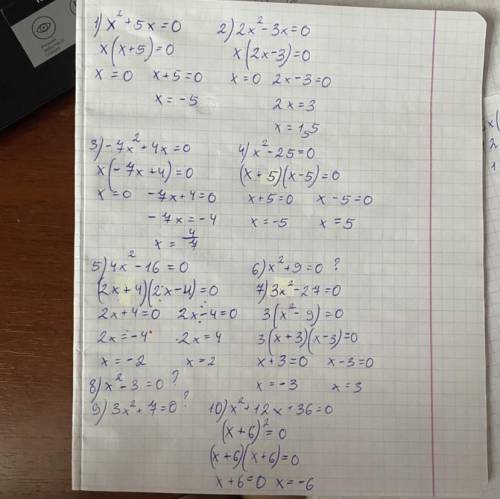 1) x² + 5x = 0
x(x+5) = 0
x = 0 x+5 = 0
x = -5
2) 2x² - 3x = 0
x(2x-3) = 0
x = 0 2x-3 = 0
2x = 3
x = 1,5
3) -7x² + 4x = 0
x(-7x+4) = 0
x = 0 -7x+4 = 0
-7x = -4
x = 4/7
4) x² - 25 = 0
(x+5)(x-5) = 0
x+5 = 0 x-5 = 0
x = -5 x = 5
5) 4x² - 16 = 0
(2x+4)(2x-4) = 0
2x+4 = 0 2x-4 = 0
2x = -4 2x = 4
x = -2 x = 2
6) x² + 9 = 0 ?
7) 3x² - 27 = 0
3(x² - 9) = 0
3(x+3)(x-3) = 0
x+3 = 0 x-3 = 0
x = -3 x = 3
8) x² - 3 = 0 ?
9) 3x² + 7 = 0 ?
10) x² + 12x + 36 = 0
(x+6)² = 0
(x+6)(x+6) = 0
x+6 = 0 x = -6